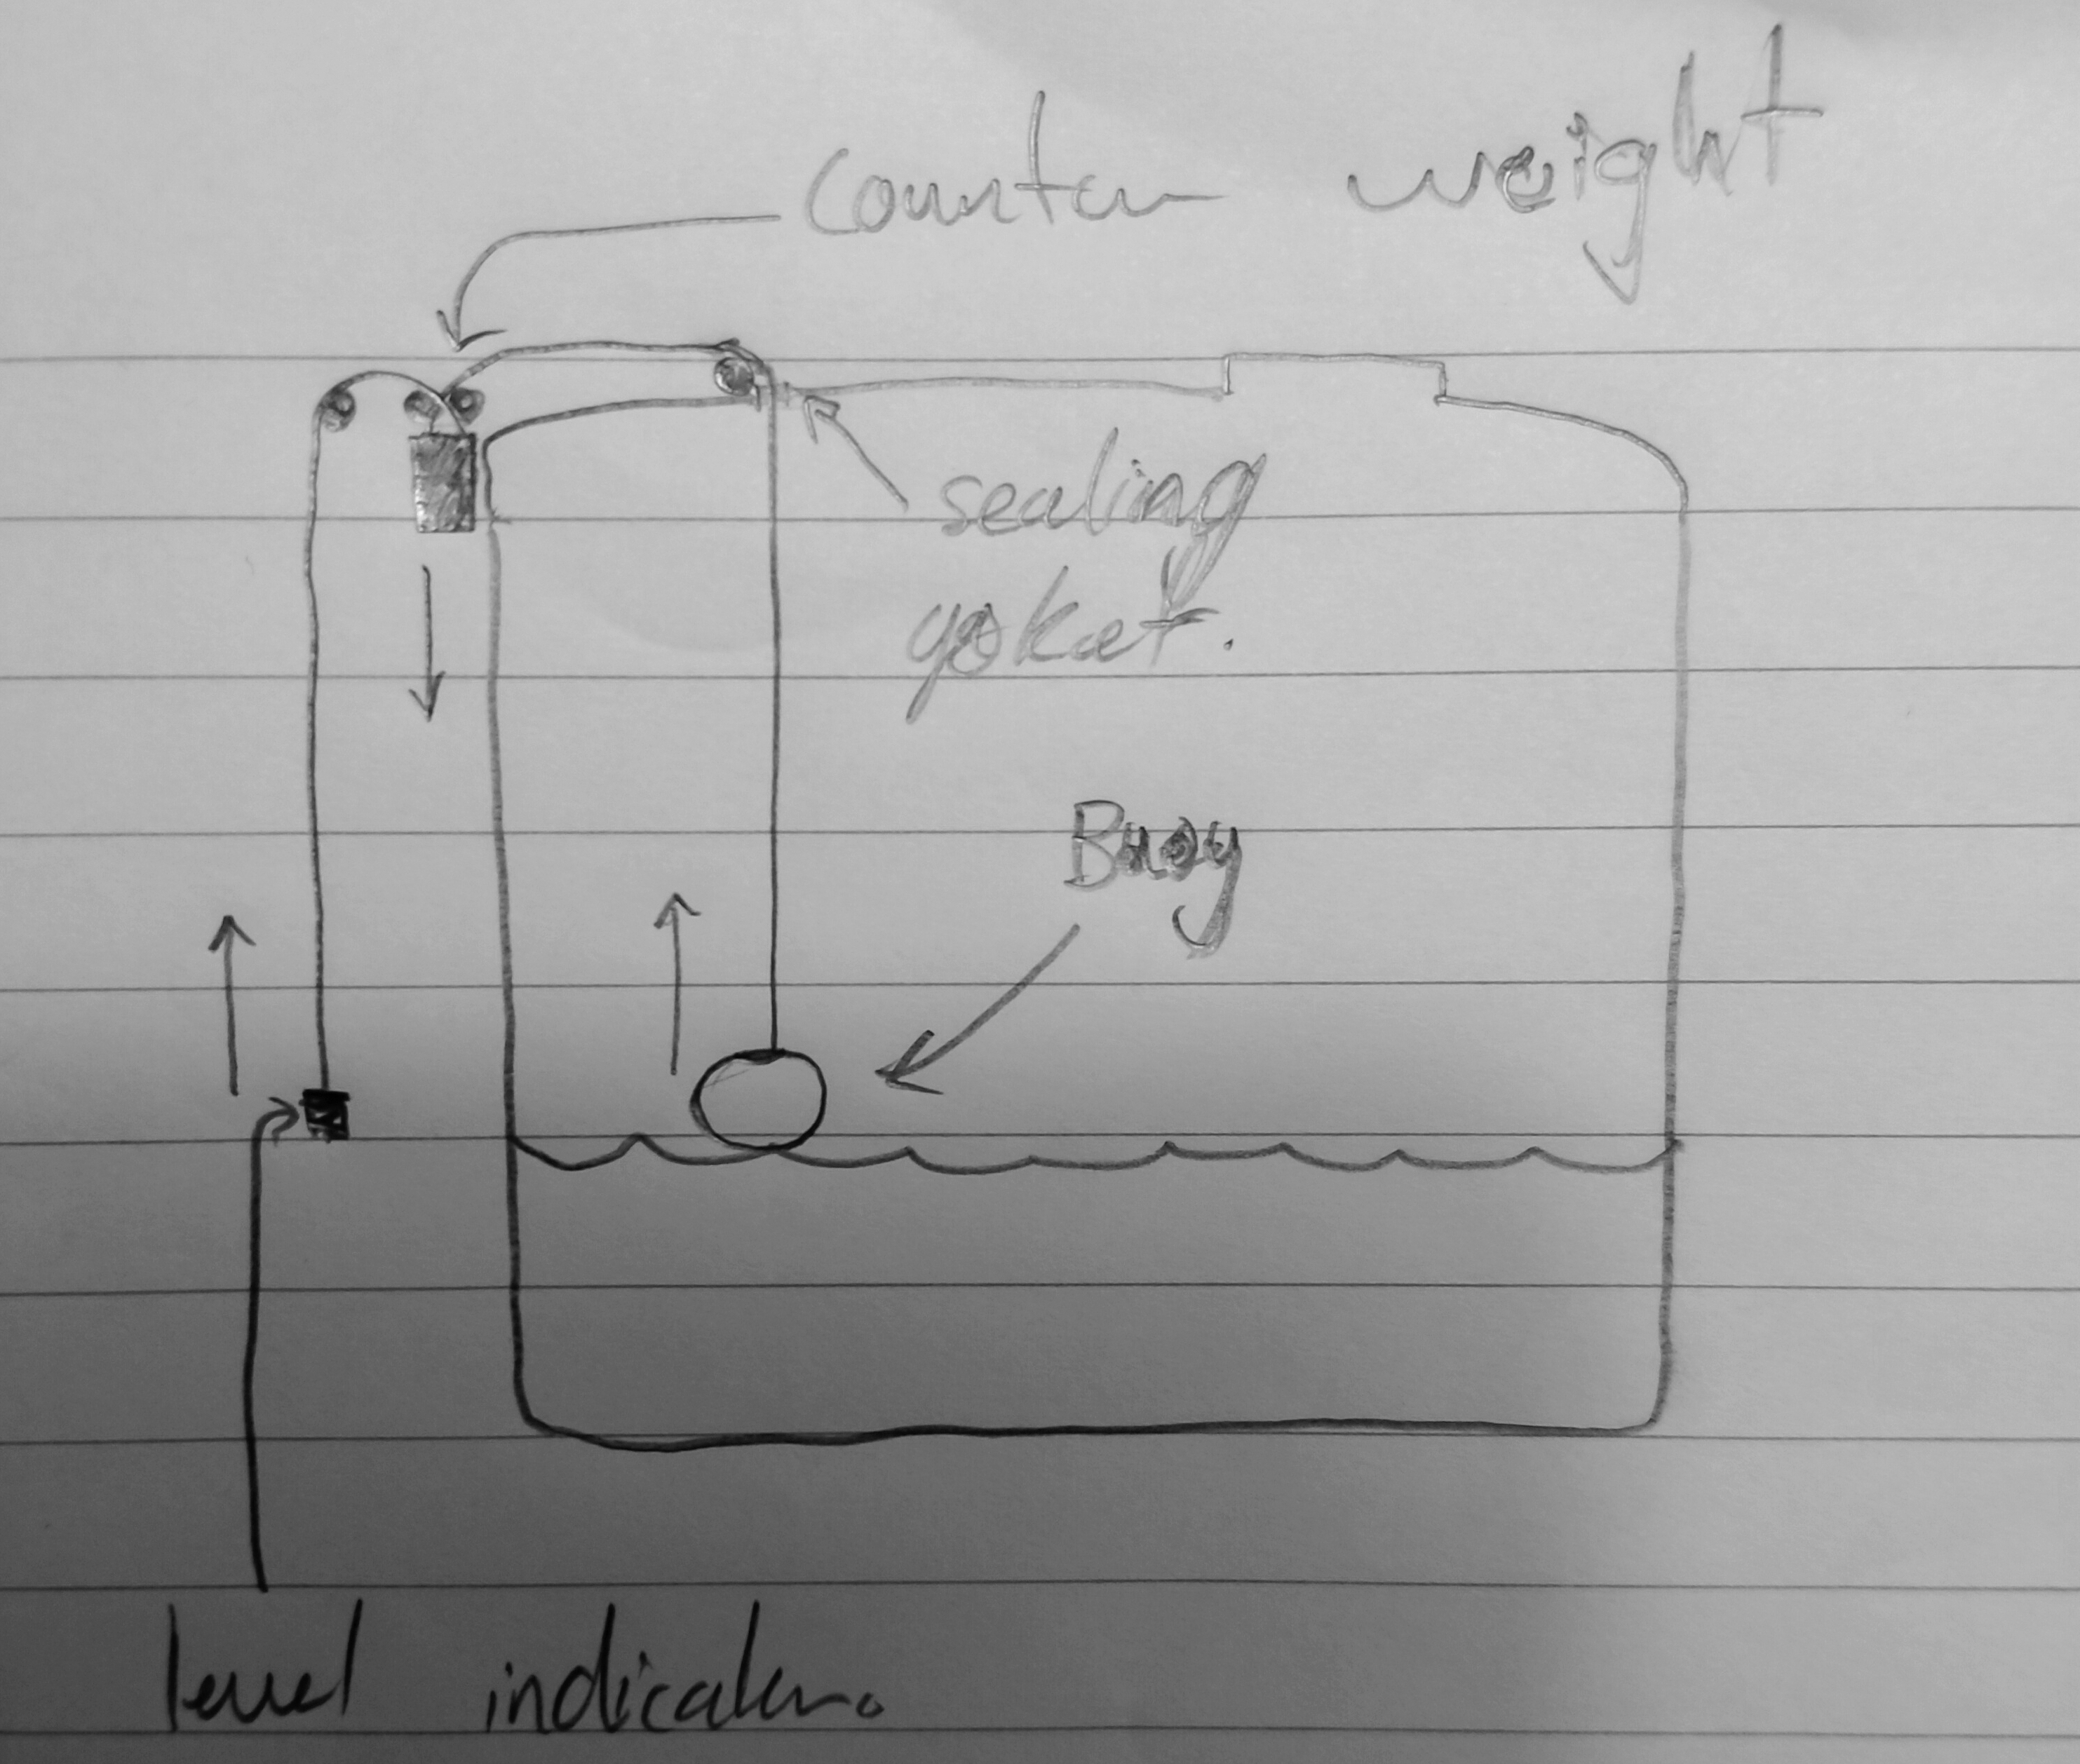 counter weight
sealing
gasket.
Buoy
level indicator.